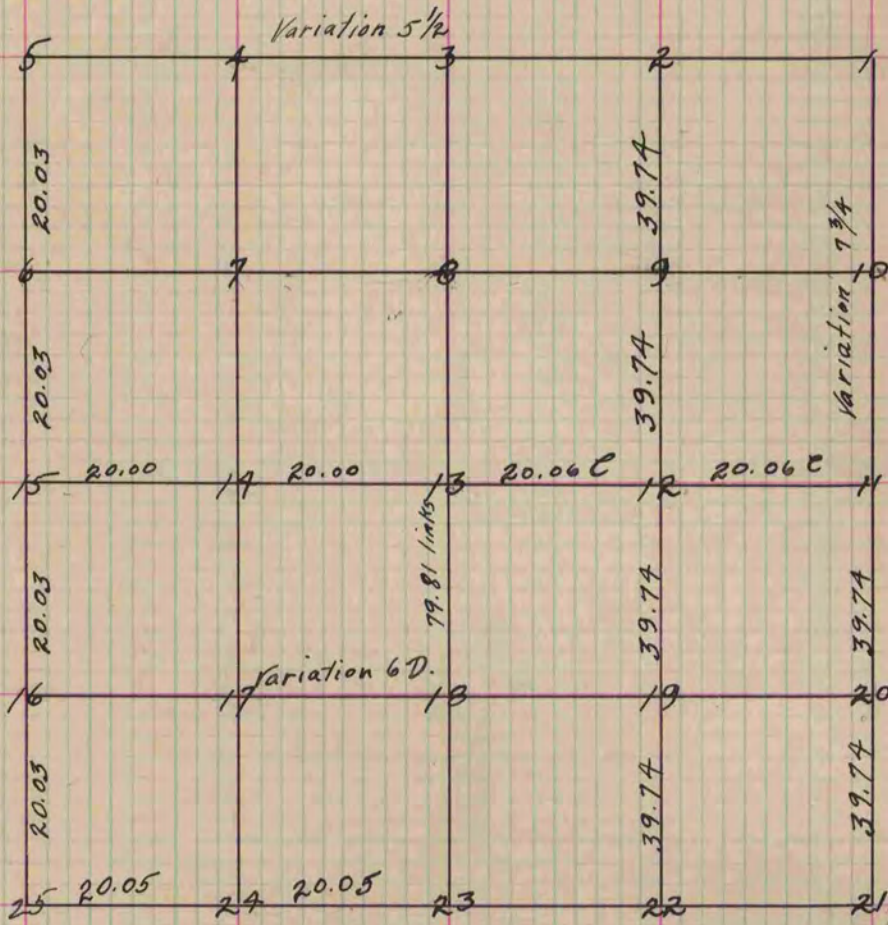 Variation 5 1/2
5 4 3 2 1
20.03 39.74
Variation 7 3/4
6 7 8 9 10
20.03 39.74
15 20.00 14 20.00 13 20.06 C 12 20.06 C 11
79.81 links
20.03 39.74 39.74
Variation 6 D.
16 17 18 19 20
20.03 39.74 39.74
25 20.05 24 20.05 23 22 21